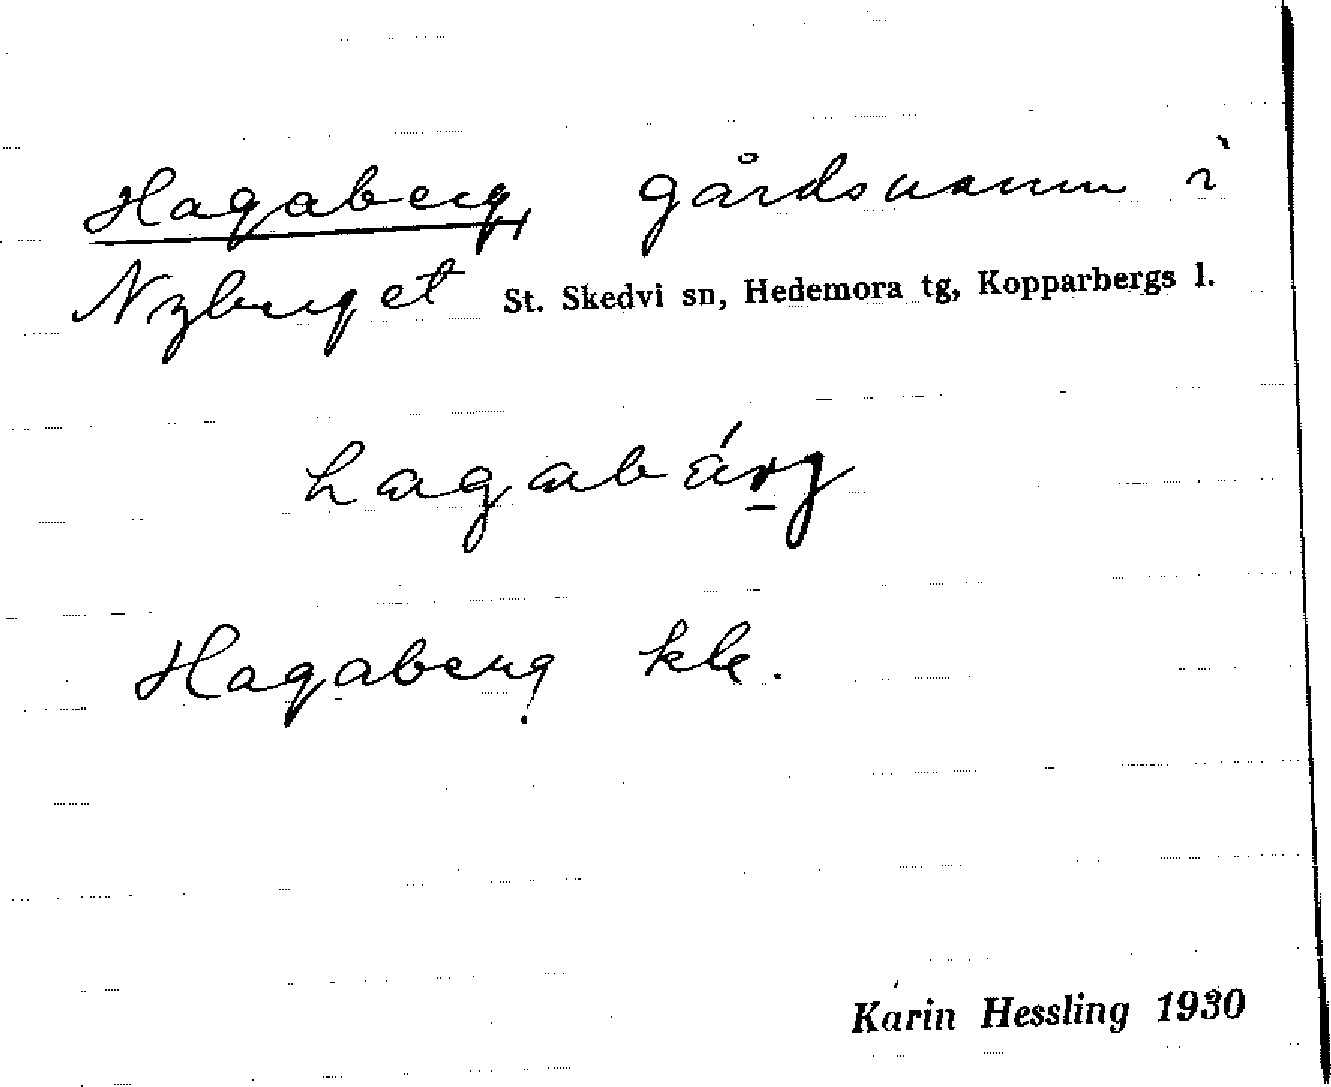 Hagaberg, gårdsnamn i
Nyberget St. Skedvi sn, Hedemora tg, Kopparbergs l.
hagabárg
Hagaberg kle.
Karin Hessling 1930